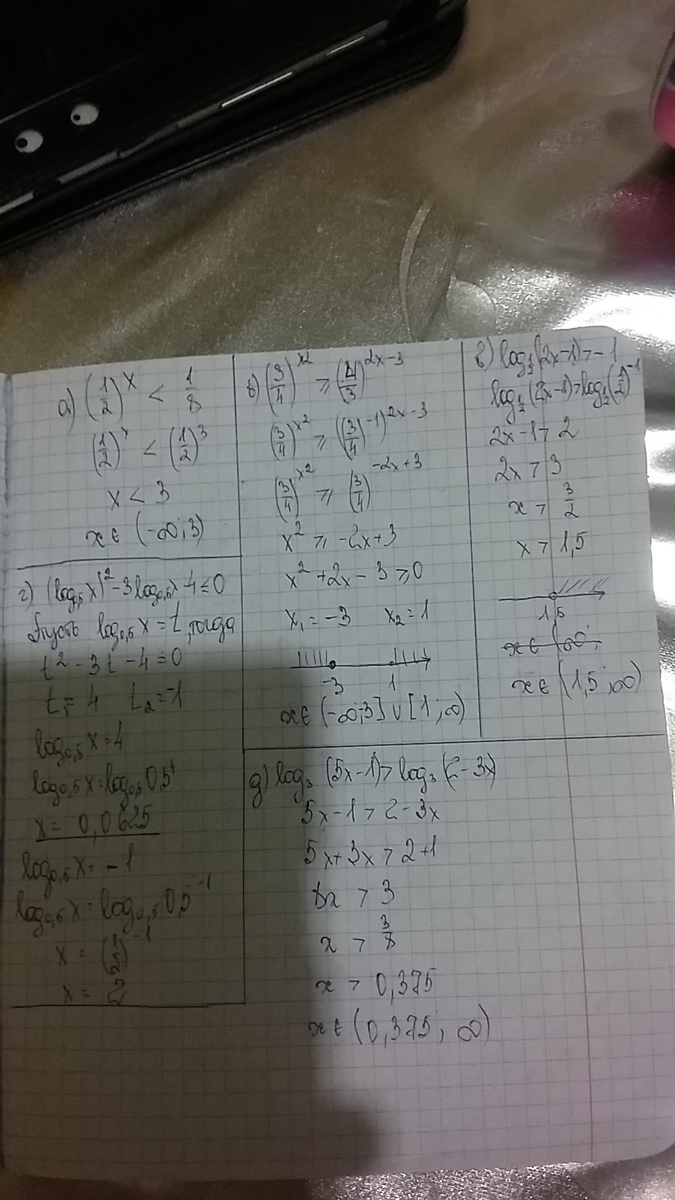 а) (1/2)^x < 1/8
(1/2)^x < (1/2)^3
x < 3
x ∈ (-∞; 3)
б) (3/4)^(x²) ⩾ (4/3)^(2x-3)
(3/4)^(x²) ⩾ ((3/4)^(-1))^(2x-3)
(3/4)^(x²) ⩾ (3/4)^(-2x+3)
x² ⩾ -2x+3
x² + 2x - 3 ⩾ 0
x₁ = -3 x₂ = 1
-3 1
x ∈ (-∞;-3] ∪ [1; ∞)
в) log_(1/2) (2x-1) > -1
log_(1/2) (2x-1) > log_(1/2) (1/2)^(-1)
2x-1 > 2
2x > 3
x > 3/2
x > 1,5
1,5
x ∈ (1,5; ∞)
г) (log_0,5 x)² - 3log_0,5 x - 4 ≤ 0
Пусть log_0,5 x = t, тогда
t² - 3t - 4 = 0
t₁ = 4 t₂ = -1
log_0,5 x = 4
log_0,5 x = log_0,5 0,5⁴
x = 0,0625
log_0,5 x = -1
log_0,5 x = log_0,5 0,5^(-1)
x = (1/2)^(-1)
x = 2
д) log₃ (5x-1) > log₃ (2-3x)
5x-1 > 2-3x
5x+3x > 2+1
8x > 3
x > 3/8
x > 0,375
x ∈ (0,375; ∞)